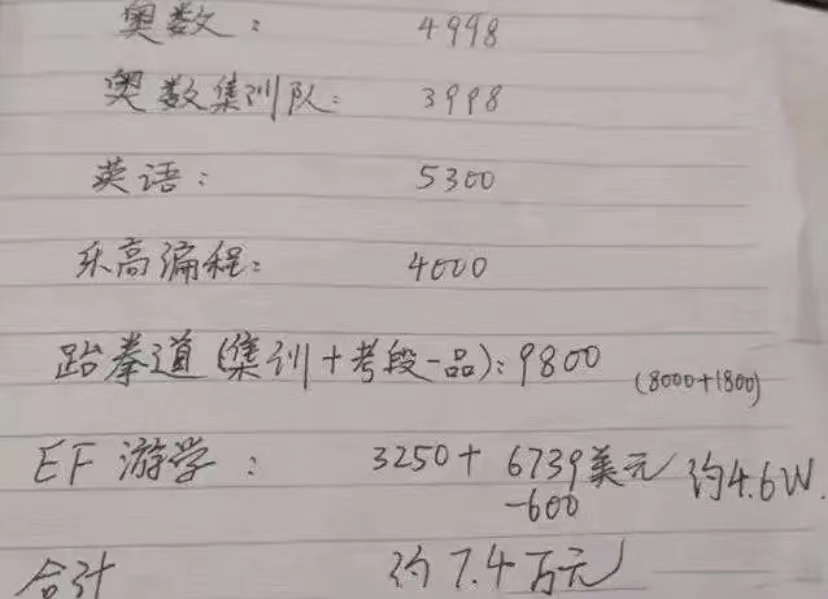 奥数： 4998
奥数集训队： 3998
英语： 5300
乐高编程： 4000
跆拳道(集训+考段一品)：9800 (8000+1800)
EF 游学： 3250+ 6739美元 约4.6W.
-600
合计 约7.4万元